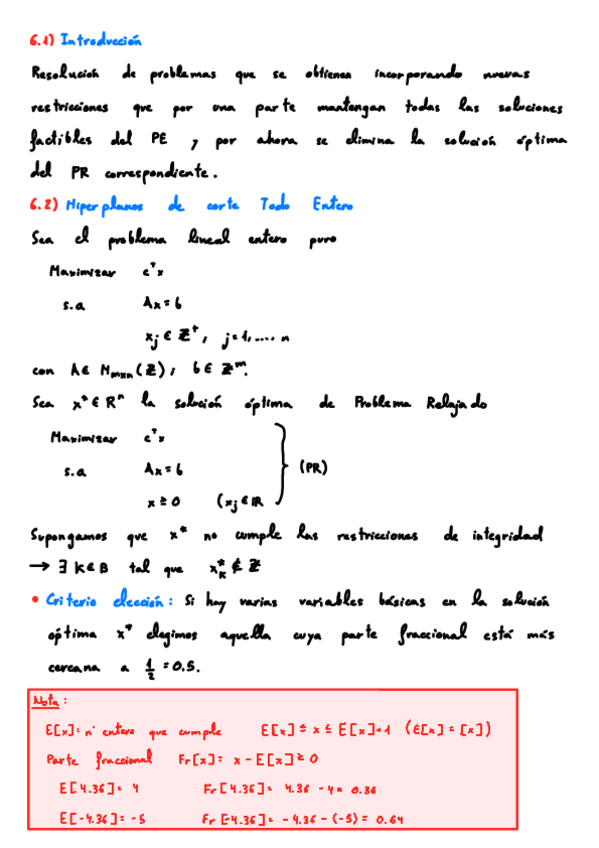 6.1) Introducción
Resolución de problemas que se obtienen incorporando nuevas
restricciones que por una parte mantengan todas las soluciones
factibles del PE y por ahora se elimina la solución óptima
del PR correspondiente.
6.2) Hiperplanos de corte Todo Entero
Sea el problema lineal entero puro
Maximizar cᵀx
s.a Ax = b
xj ∈ Z⁺, j=1,.... n
con A ∈ Mmxn(Z); b ∈ Zᵐ.
Sea x* ∈ Rⁿ la solución óptima de Problema Relajado
Maximizar cᵀx
s.a Ax = b (PR)
x ≥ 0 (xj ∈ IR
Supongamos que x* no cumple las restricciones de integridad
→ ∃ K ∈ B tal que x*k ∉ Z
• Criterio elección: Si hay varias variables básicas en la solución
óptima x* elegimos aquella cuya parte fraccional está más
cercana a 1/2 = 0.5.
Nota:
E[x]: nº entero que cumple E[x] ≤ x ≤ E[x]+1 (E[x] = [x])
Parte fraccional Fr[x]= x - E[x] ≥ 0
E[4.36]= 4 Fr[4.36]= 4.36 - 4 = 0.36
E[-4.36]= -5 Fr[-4.36]= -4.36 - (-5) = 0.64